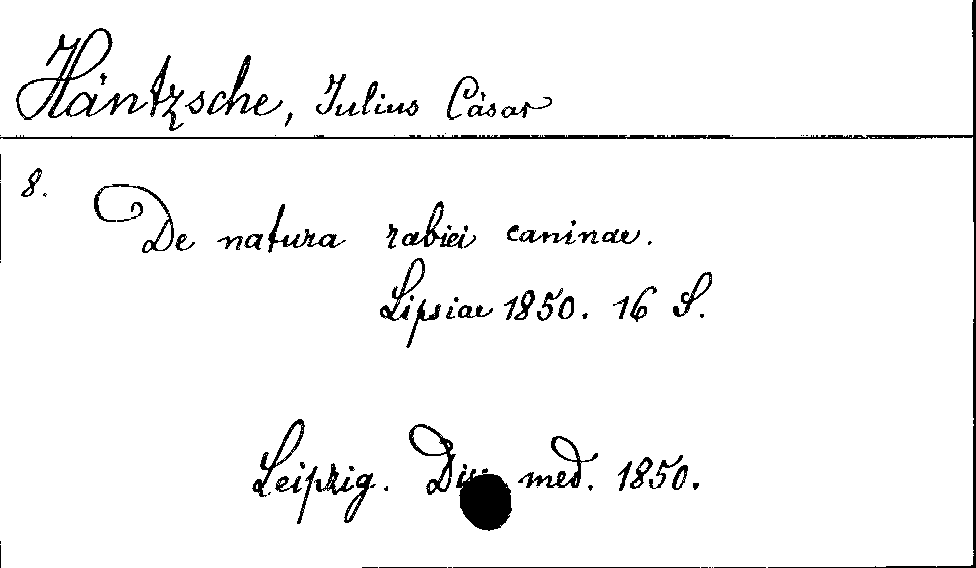 Häntzsche, Julius Cäsar
8.
De natura rabiei caninae.
Lipsiae 1850. 16 S.
Leipzig. med. 1850.